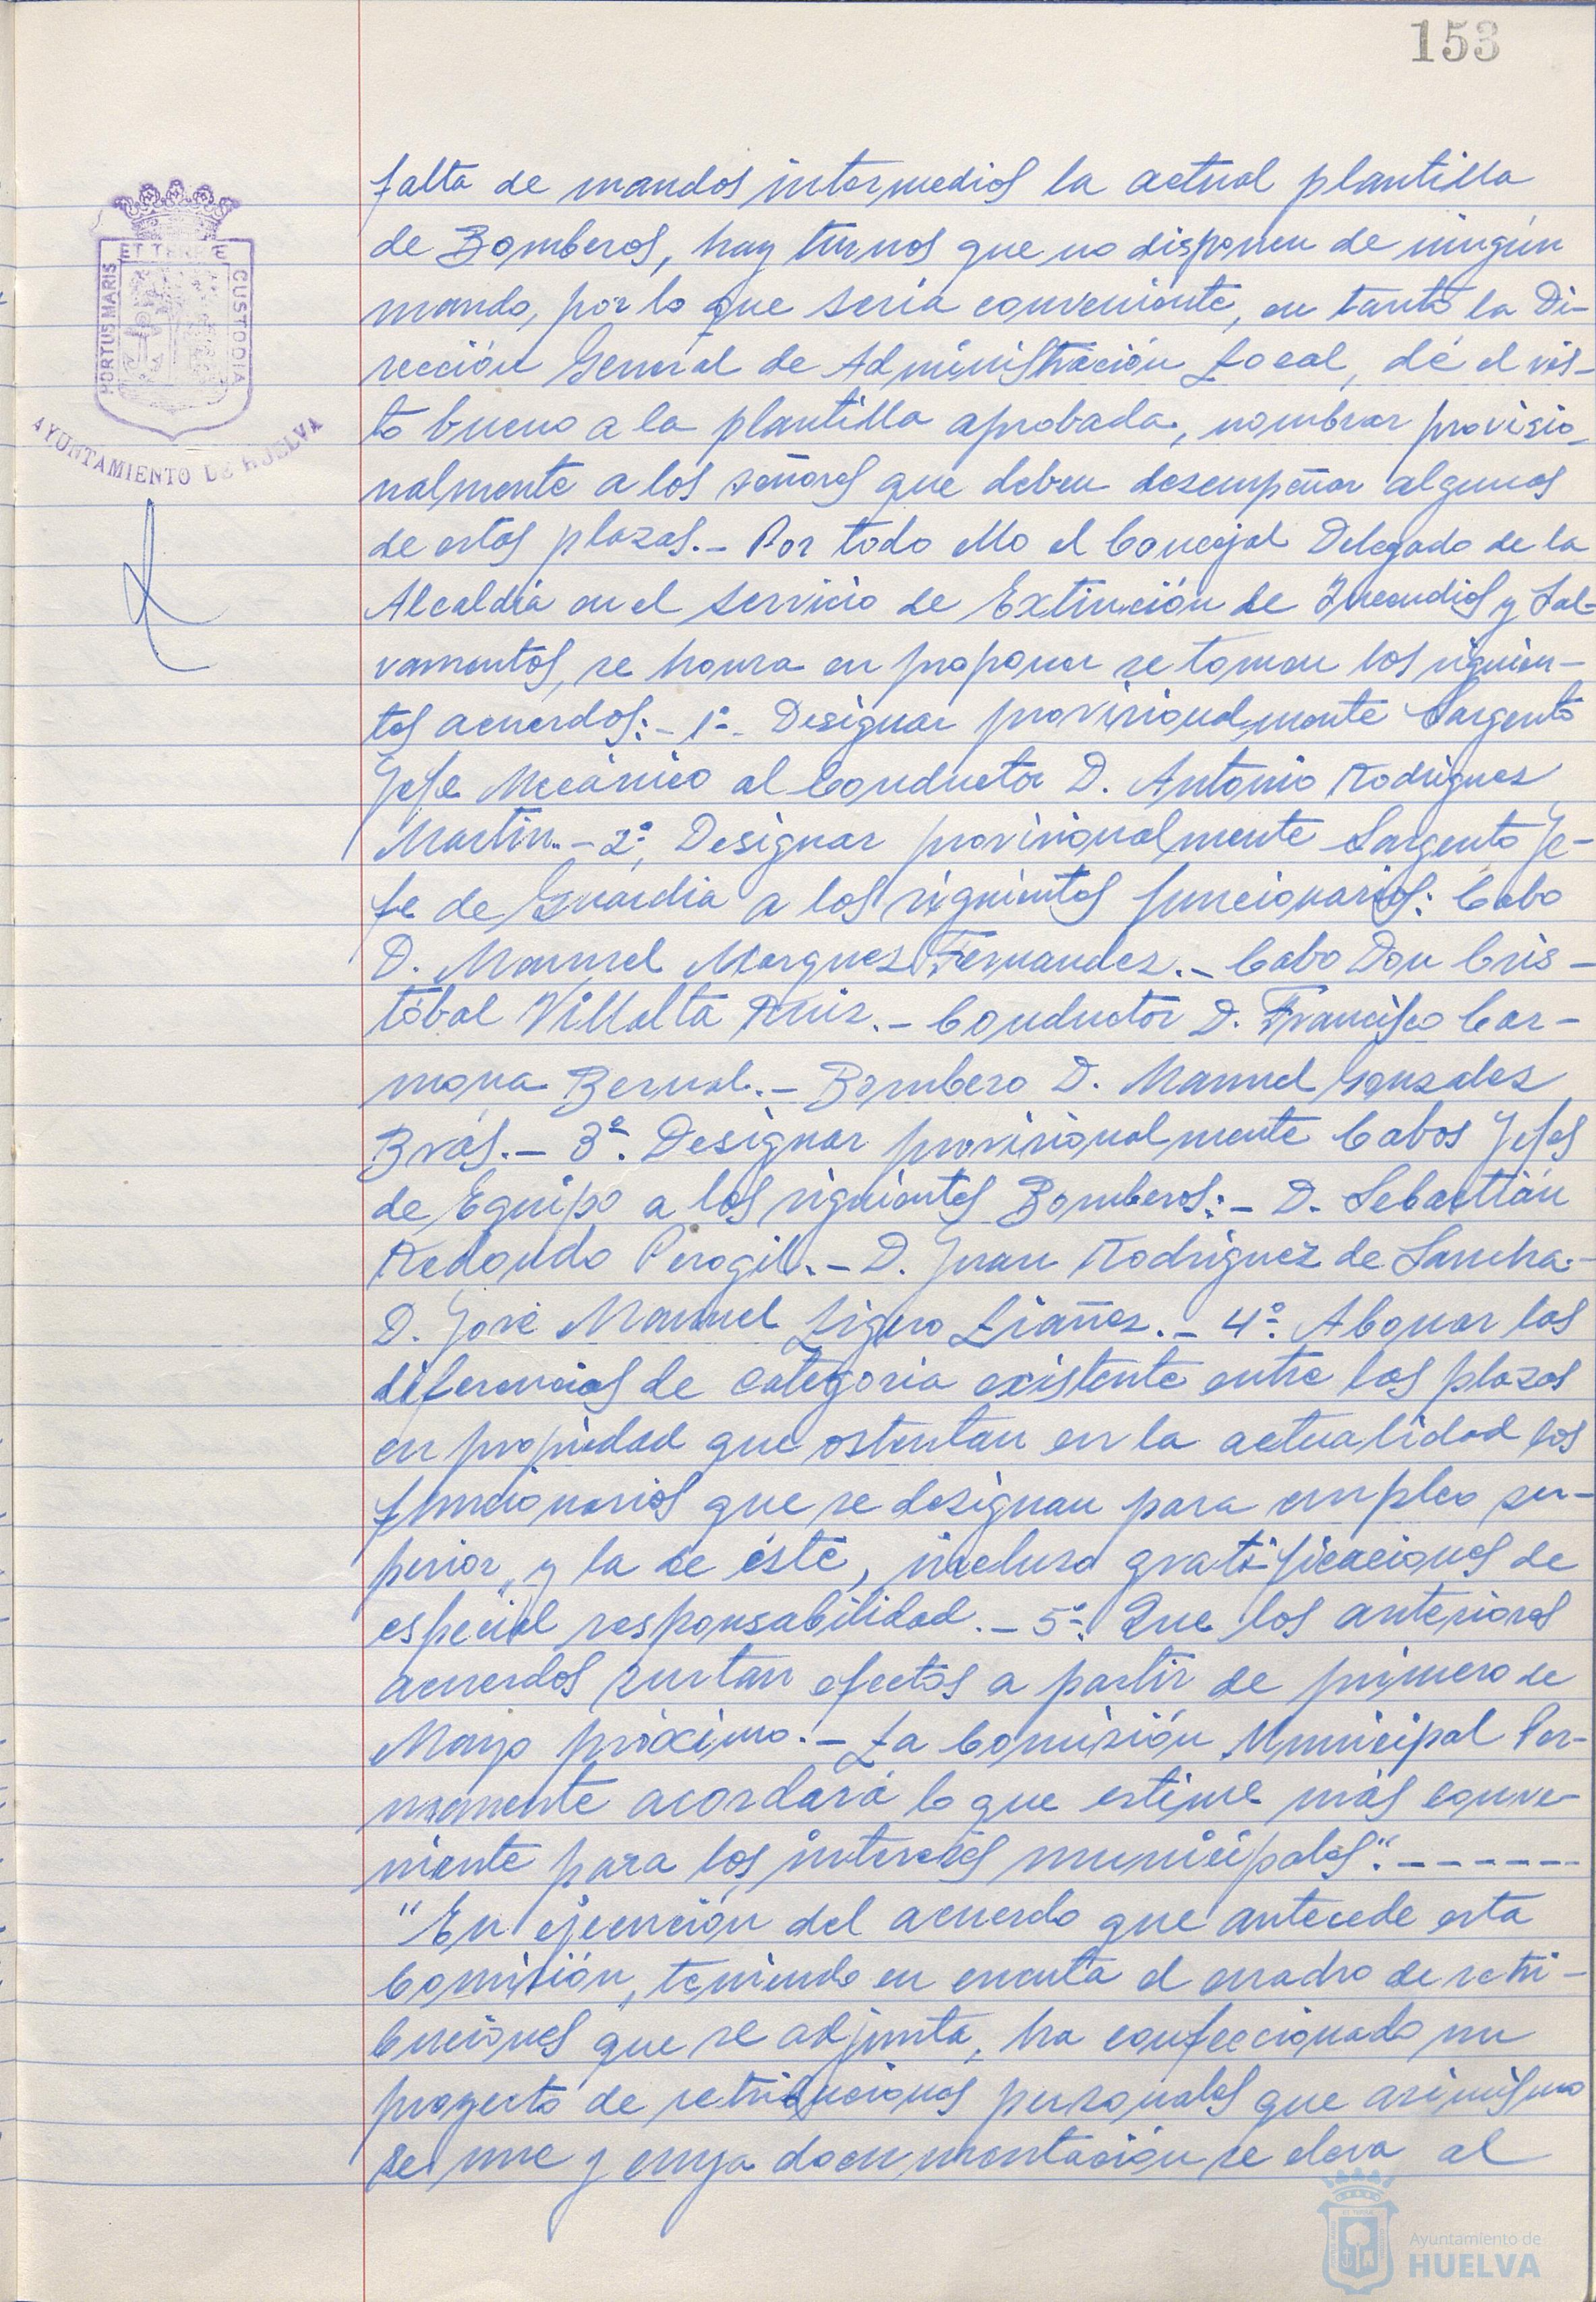 153
ET TERRE
PORTUS MARIS
CUSTODIA
AYUNTAMIENTO DE HUELVA
falta de mandos intermedios la actual plantilla
de Bomberos, hay turnos que no disponen de ningún
mando, por lo que seria conveniente, en tanto la Di-
rección General de Administración Local, dé el vis-
to bueno a la plantilla aprobada, nombrar provisio-
nalmente a los señores que deben desempeñar algunas
de estas plazas.- Por todo ello el Concejal Delegado de la
Alcaldia en el Servicio de Extinción de Incendios y Sal-
vamentos, se honra en proponer se tomen los siguien-
tes acuerdos:- 1º- Designar provisionalmente Sargento
Jefe Mecánico al Conductor D. Antonio Rodriguez
Martin.- 2º, Designar provisionalmente Sargento Je-
fe de Guardia a los siguientes funcionarios: Cabo
D. Manuel Marquez Fernandez.- Cabo Don Cris-
tóbal Villalta Ruiz.- Conductor D. Francisco Car-
mona Bernal.- Bombero D. Manuel Gonzalez
Brás.- 3º. Designar provisionalmente Cabos Jefes
de Equipo a los siguientes Bomberos:- D. Sebastián
Redondo Perogil.- D. Juan Rodriguez de Sancha.-
D. José Manuel Ligero Liañez.- 4º. Abonar las
diferencias de categoria existente entre las plazas
en propiedad que ostentan en la actualidad los
funcionarios que se designan para empleo su-
perior, y la de éste, incluso gratificaciones de
especial responsabilidad.- 5º. Que los anteriores
acuerdos surtan efectos a partir de primero de
Mayo próximo.- La Comisión Municipal Per-
manente acordará lo que estime más conve-
niente para los intereses municipales".-------
"En ejecución del acuerdo que antecede esta
Comisión, teniendo en cuenta el cuadro de retri-
buciones que se adjunta, ha confeccionado un
proyecto de retribuciones personales que asimismo
se une y cuya documentación se eleva al
Ayuntamiento de
HUELVA